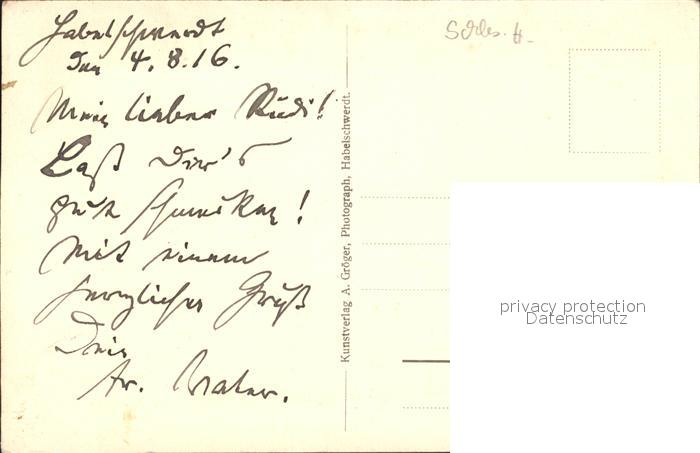 Habelschwerdt
den 4. 8. 16.
Mein lieber Rudi!
Laß Dir's
gut schmecken!
Mit einem
herzlichen Gruß
Dein
Vater.
Schles.
Kunstverlag A. Gröger, Photograph, Habelschwerdt.
privacy protection
Datenschutz